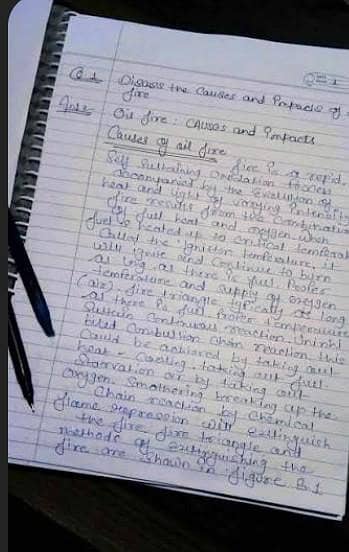 Q.1 Discuss the Causes and Impacts of
fire
Oil fire : CAuses and Impacts
Causes of oil fire
fire is a rapid,
Self Sustaining oxidation Process
accompanied by the evolution of
heat and light of varying Intensity
fire results from the Combination
of fuel heat and oxygen when
fuel is heated up to critical temperat
Called the ignition temperature it
will ignite and Continue to burn
as long as there is fuel Proper
temperature and supply of oxygen
(air) fire triangle typically as long
as there is fuel Proper Temperature
Sustain Continuous reaction
Combustion Chain reaction. this
Could be achieved by taking out
heat - Cooling, taking out fuel
Starvation or by taking out
Oxygen. Smothering breaking up the
Chain reaction by Chemical
flame Suppression will extinguish
the fire fire triangle and
methods of extinguishing the
fire are shown in figure 1